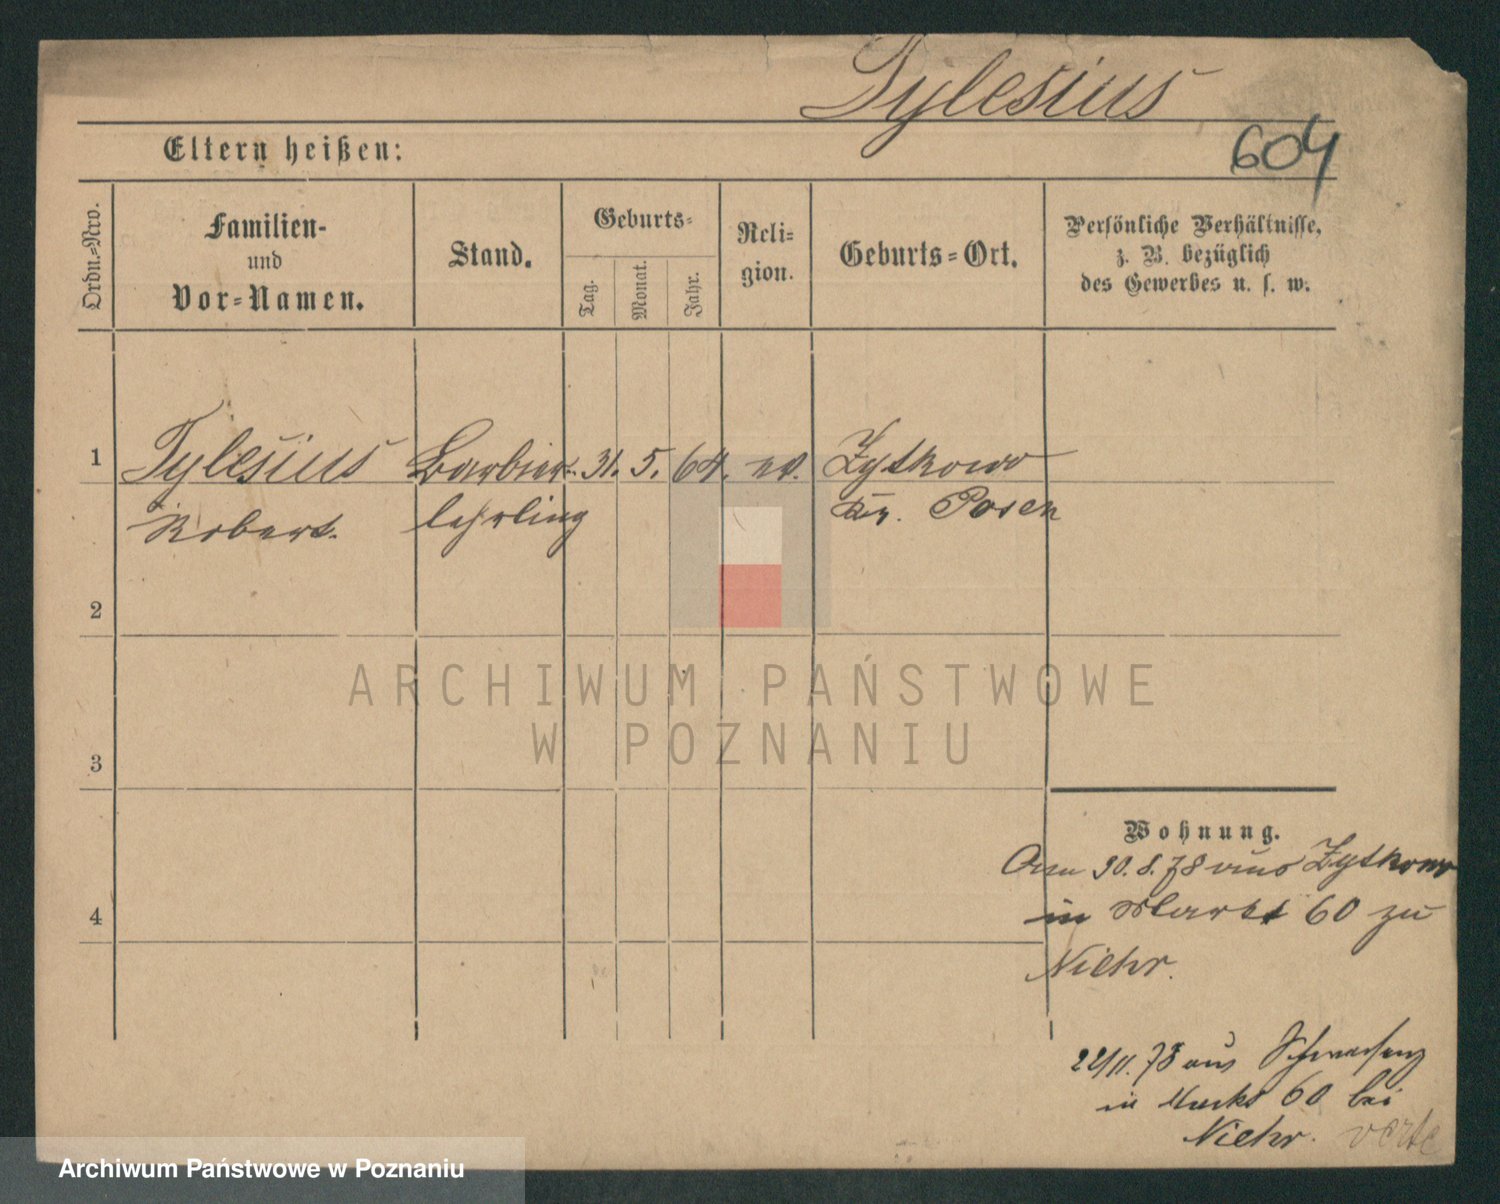 Tylesius
604
Eltern heißen:
Ordn.-Nro.
Familien-
und
Vor-Namen.
Stand.
Geburts-
Tag.
Monat.
Jahr.
Reli-
gion.
Geburts-Ort.
Persönliche Verhältnisse,
z. B. bezüglich
des Gewerbes u. s. w.
1 Tylesius Barbier- 31. 5. 64. ev. Zytkowo
Robert. lehrling Kr. Posen
2
3
4
Wohnung.
30.8.78 aus Zytkowo
in Markt 60 zu
Niehr.
22/11.78 aus Schwersenz
in Markt 60 bei
Niehr. verte
ARCHIWUM PAŃSTWOWE
W POZNANIU
Archiwum Państwowe w Poznaniu